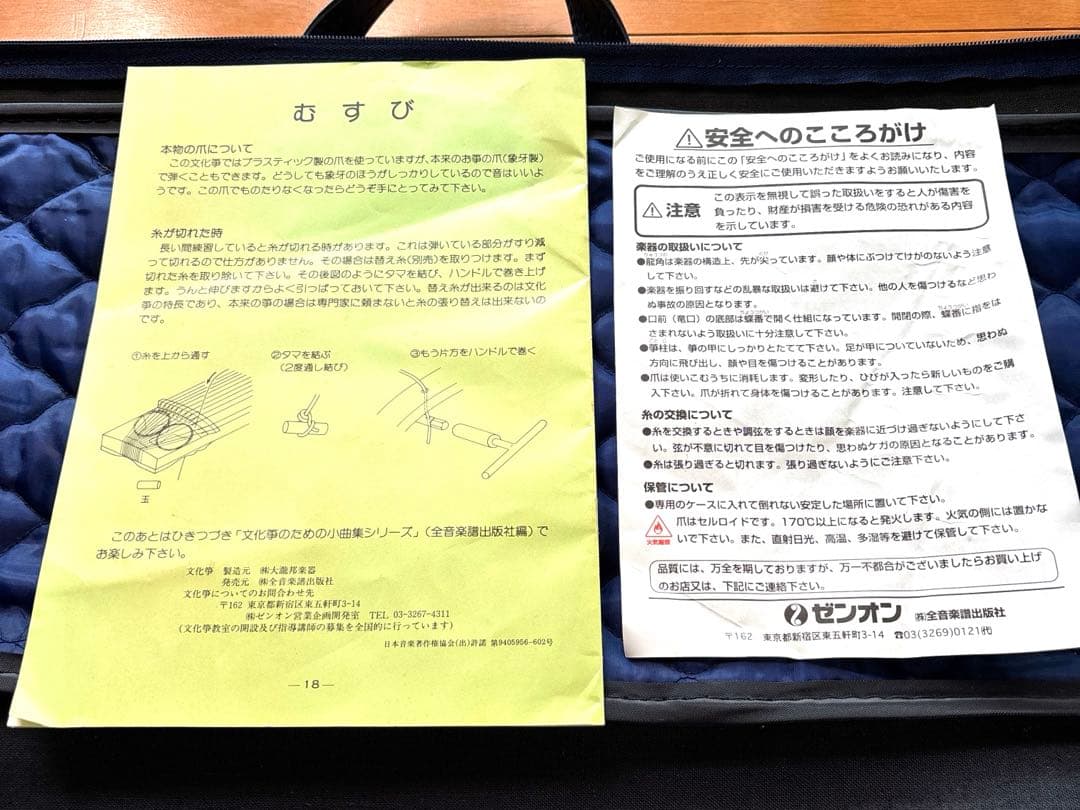 むすび
本物の爪について
この文化箏ではプラスティック製の爪を使っていますが、本来のお箏の爪(象牙製)
で弾くこともできます。どうしても象牙のほうがしっかりしているので音はいいよ
うです。この爪でものたりなくなったらどうぞ手にとってみて下さい。
糸が切れた時
長い間練習していると糸が切れる時があります。これは弾いている部分がすり減
って切れるので仕方がありません。その場合は替え糸(別売)を取りつけます。まず
切れた糸を取り除いて下さい。その後図のようにタマを結び、ハンドルで巻き上げ
ます。うんと伸びますからよく引っぱっておいて下さい。替え糸が出来るのは文化
箏の特長であり、本来の箏の場合は専門家に頼まないと糸の張り替えは出来ないの
です。
①糸を上から通す
②タマを結ぶ
(2度通し結び)
③もう片方をハンドルで巻く
玉
このあとはひきつづき「文化箏のための小曲集シリーズ」(全音楽譜出版社編)で
お楽しみ下さい。
文化箏 製造元 ㈱大瀧邦楽器
発売元 ㈱全音楽譜出版社
文化箏についてのお問合わせ先
〒162 東京都新宿区東五軒町3-14
㈱ゼンオン営業企画開発室 TEL 03-3267-4311
(文化箏教室の開設及び指導講師の募集を全国的に行っています)
日本音楽著作権協会(出)許諾 第9405956-602号
—18—
⚠安全へのこころがけ
ご使用になる前にこの「安全へのこころがけ」をよくお読みになり、内容
をご理解のうえ正しく安全にご使用いただきますようお願いいたします。
⚠注意
この表示を無視して誤った取扱いをすると人が傷害を
負ったり、財産が損害を受ける危険の恐れがある内容
を示しています。
楽器の取扱いについて
●龍角は楽器の構造上、先が尖っています。顔や体にぶつけてけがのないよう注意
して下さい。
●楽器を振り回すなどの乱暴な取扱いは避けて下さい。他の人を傷つけるなど思わ
ぬ事故の原因となります。
●口前(竜口)の底部は蝶番で開く仕組になっています。開閉の際、蝶番に指をは
さまれないよう取扱いに十分注意して下さい。
●箏柱は、箏の甲にしっかりとたてて下さい。足が甲についていないため、思わぬ
方向に飛び出し、顔や目を傷つけることがあります。
●爪は使いこむうちに消耗します。変形したり、ひびが入ったら新しいものをご購
入下さい。爪が折れて身体を傷つけることがあります。注意して下さい。
糸の交換について
●糸を交換するときや調弦をするときは顔を楽器に近づけ過ぎないようにして下さ
い。弦が不意に切れて目を傷つけたり、思わぬケガの原因となることがあります。
●糸は張り過ぎると切れます。張り過ぎないようにご注意下さい。
保管について
●専用のケースに入れて倒れない安定した場所に置いて下さい。
爪はセルロイドです。170℃以上になると発火します。火気の側には置かな
いで下さい。また、直射日光、高温、多湿等を避けて保管して下さい。
火気厳禁
品質には、万全を期しておりますが、万一不都合がございましたらお買い上げ
のお店又は、下記にご連絡下さい。
ゼンオン ㈱全音楽譜出版社
〒162 東京都新宿区東五軒町3-14 ☎03(3269)0121㈹